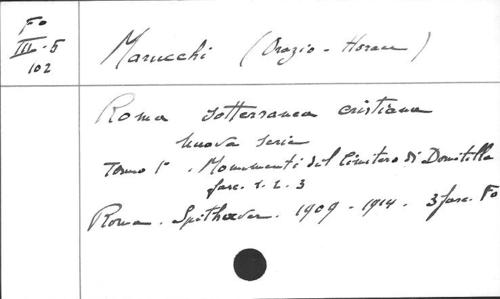 Fo
III-5
102
Marucchi (Orazio - Horace)
Roma sotterranea cristiana
nuova serie
Tomo 1° . Monumenti del Cimitero di Domitilla
fasc. 1. 2. 3
Roma . Spithœver . 1909 - 1914 . 3 fasc. Fo